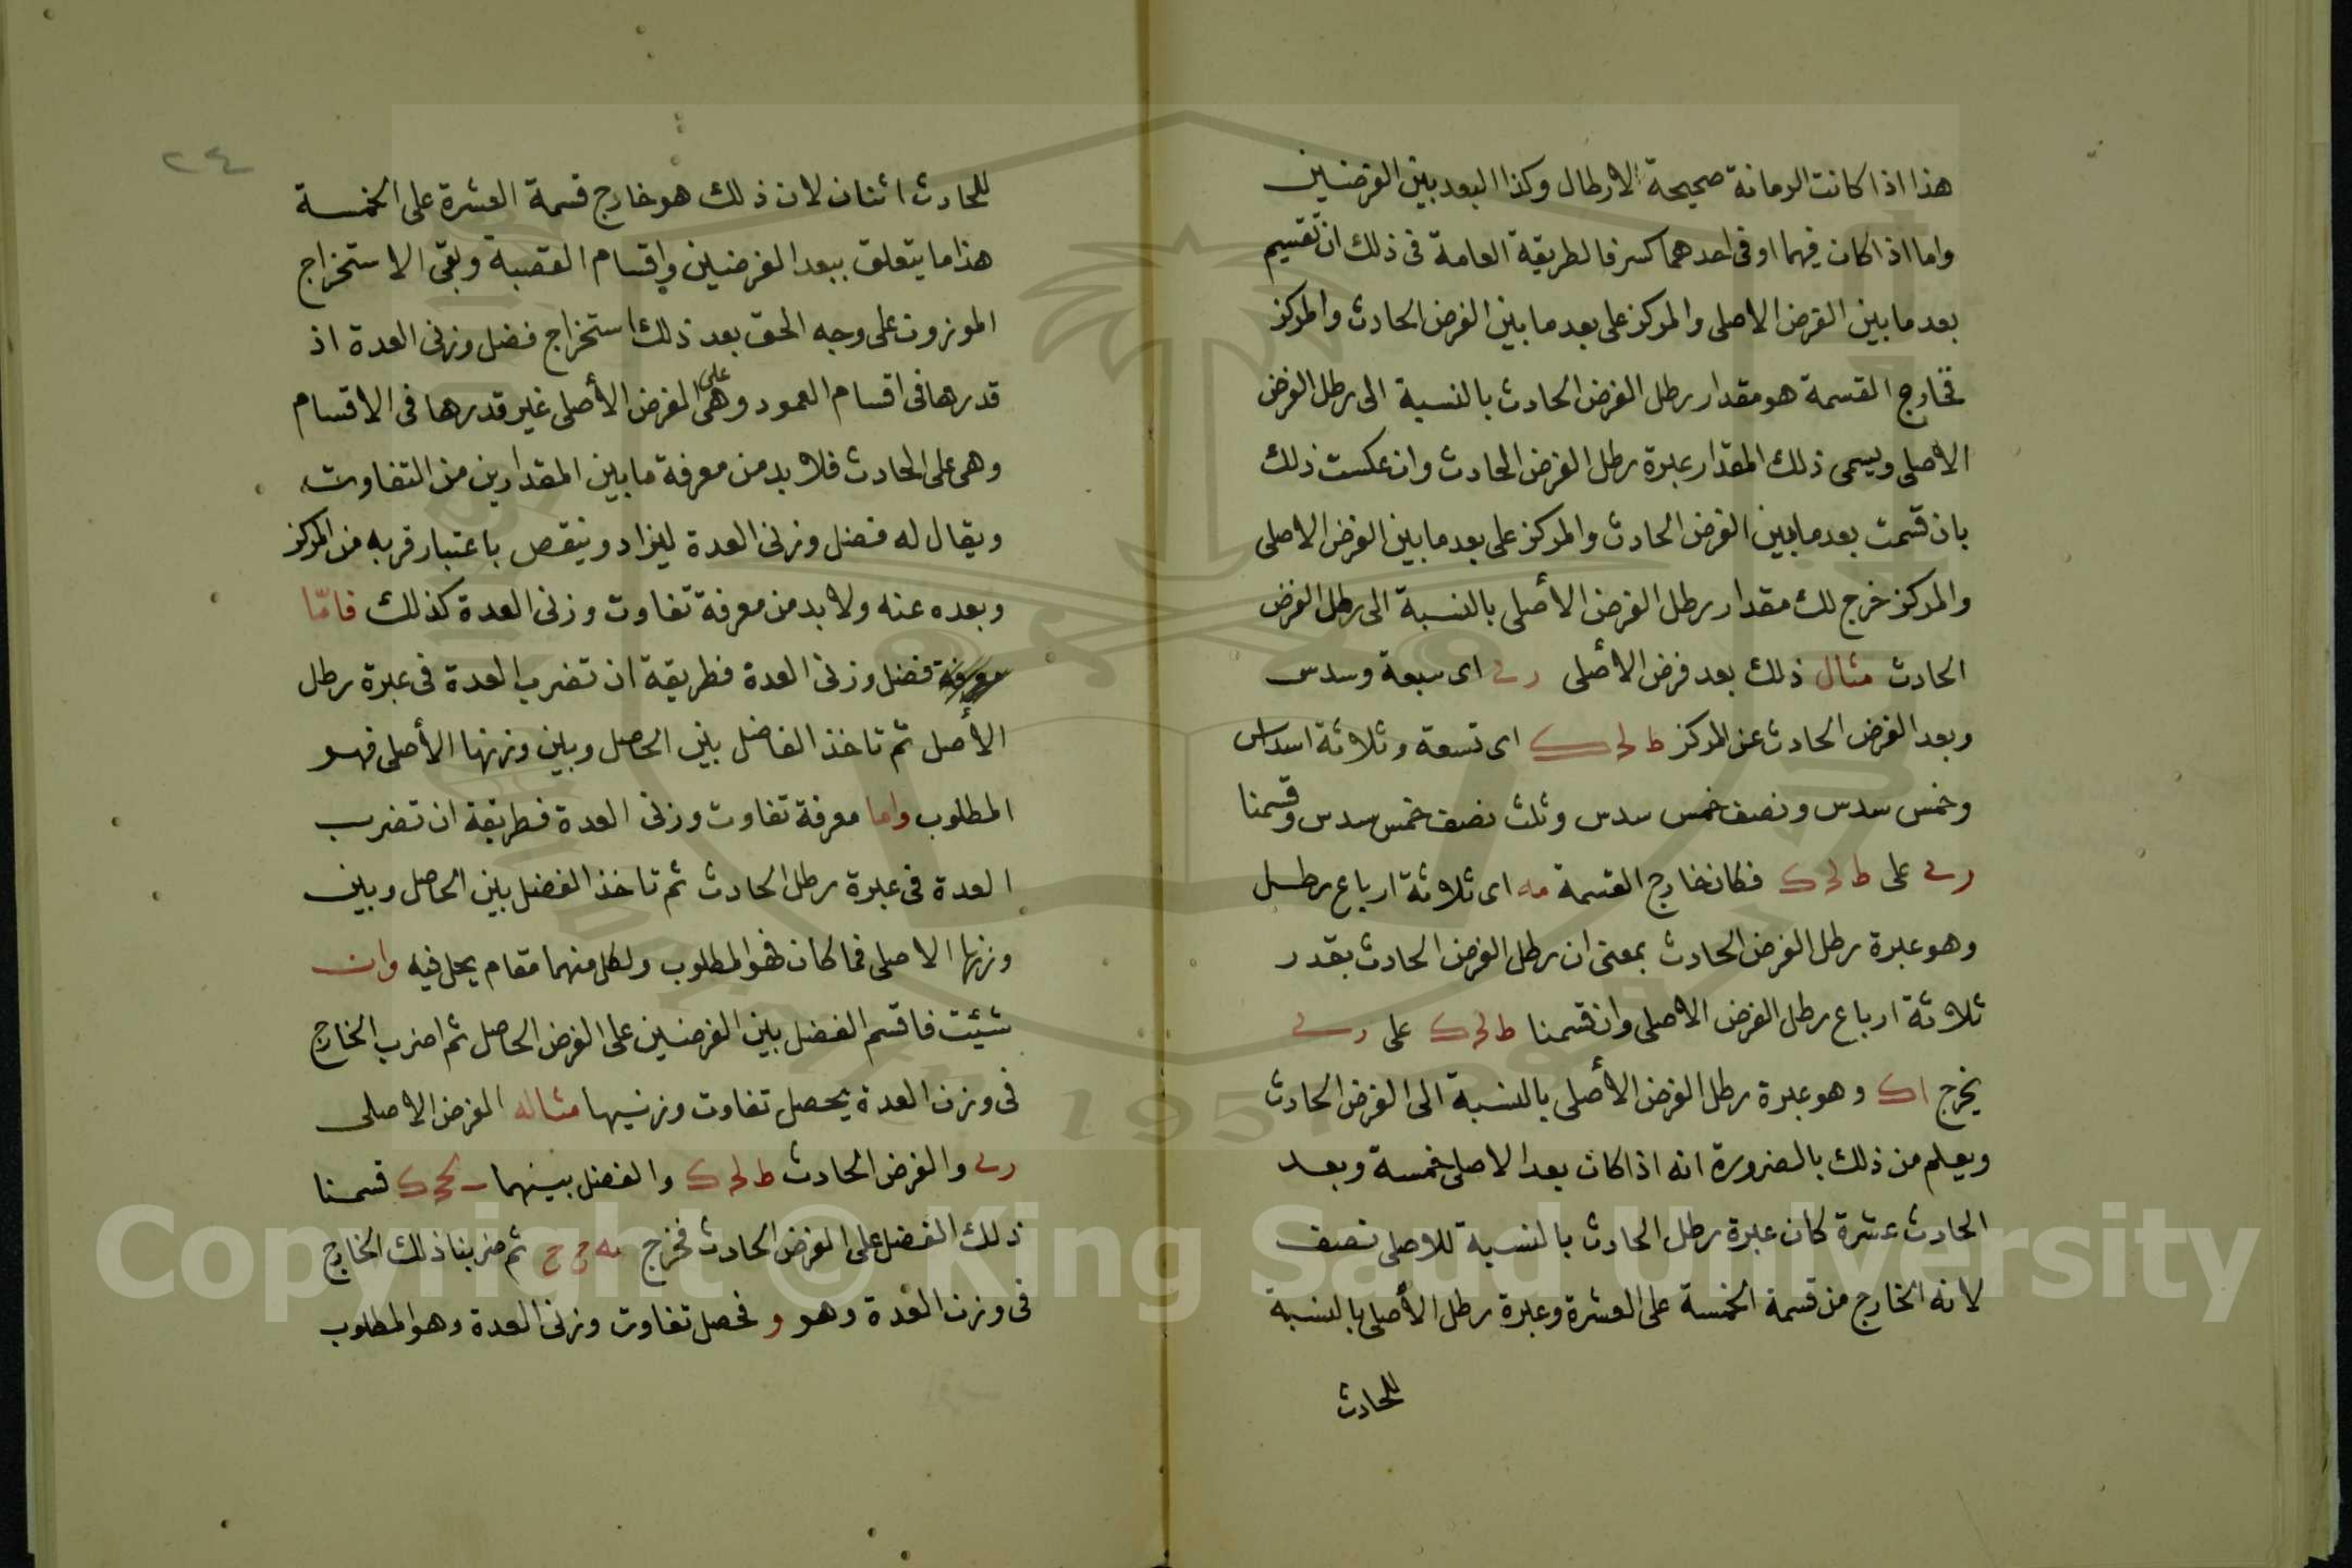 هذا اذا كانت الرمانة صحيحة الارطال وكذا البعد بين الفرضين
واما اذا كان فيهما او فى احدهما كسر فالطريقة العامة فى ذلك ان تقسيم
بعد ما بين الفرض الاصلى والمركز على بعد ما بين الفرض الحادث والمركز
فخارج القسمة هو مقدار رطل الفرض الحادث بالنسبة الى رطل الفرض
الاصلى ويسمى ذلك المقدار عبرة رطل الفرض الحادث وان عكست ذلك
بان قسمت بعد ما بين الفرض الحادث والمركز على بعد ما بين الفرض الاصلى
والمركز خرج لك مقدار رطل الفرض الأصلى بالنسبة الى رطل الفرض
الحادث مثال ذلك بعد فرض الأصلى اى سبعة وسدس
وبعد الفرض الحادث عن المركز ط لح ك اى تسعة وثلاثة اسداس
وخمس سدس ونصف خمس سدس وثلث نصف خمس سدس وقسمنا
على ط لح ك فكان خارج القسمة مه اى ثلاثة ارباع رطل
وهو عبرة رطل الفرض الحادث بمعنى ان رطل الفرض الحادث بقدر
ثلاثة ارباع رطل الفرض الاصلى وان قسمنا ط لح ك على
يخرج اك وهو عبرة رطل الفرض الأصلى بالنسبة الى الفرض الحادث
ويعلم من ذلك بالضرورة انه اذا كان بعد الاصلى خمسة وبعد
الحادث عشرة كان عبرة رطل الحادث بالنسبة للاصلى نصف
لانه الخارج من قسمة الخمسة على العشرة وعبرة رطل الأصلى بالنسبة
للحادث
٢٤
للحادث اثنان لان ذلك هو خارج قسمة العشرة على الخمسة
هذا ما يتعلق ببعد الفرضين واقسام القصبة وبقى الاستخراج
الموزون على وجه الحق بعد ذلك استخراج فضل وزنى العدة اذ
قدرها فى اقسام العمود وهى على الفرض الأصلى غير قدرها فى الاقسام
وهى على الحادث فلا بد من معرفة ما بين المقدارين من التفاوت
ويقال له فضل وزنى العدة ليزاد وينقص باعتبار قربه من المركز
وبعده عنه ولا بد من معرفة تفاوت وزنى العدة كذلك فامّا
معرفة فضل وزنى العدة فطريقة ان تضرب العدة فى عبرة رطل
الأصل ثم تاخذ الفاضل بين الحاصل وبين وزنها الأصلى فهو
المطلوب واما معرفة تفاوت وزنى العدة فطريقة ان تضرب
العدة فى عبرة رطل الحادث ثم تاخذ الفضل بين الحاصل وبين
وزنها الاصلى فما كان فهو المطلوب ولكل منهما مقام يحل فيه وان
شئت فاقسم الفضل بين الفرضين على الفرض الحاصل ثم اضرب الخارج
فى وزن العدة يحصل تفاوت وزنيها مثاله الفرض الاصلى
والفرض الحادث ط لح ك والفضل بينهما قسمنا
ذلك الفضل على الفرض الحادث فخرج ثم ضربنا ذلك الخارج
فى وزن العدة وهو و فحصل تفاوت وزنى العدة وهو المطلوب
Copyright © King Saud University
1957